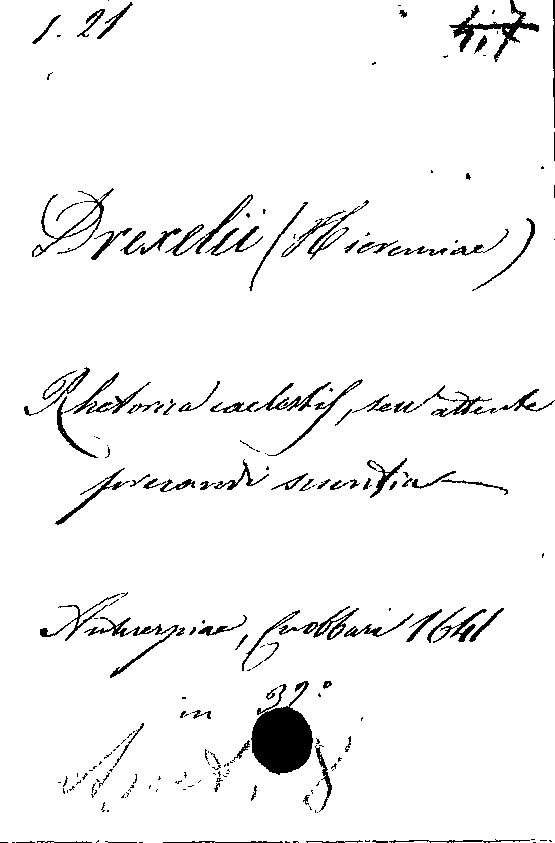 1. 21
Drexelii (Hieremiae)
Rhetorica caelestis, seu attente
precandi scientia
Antverpiae, Cnobbari 1641
in 32°